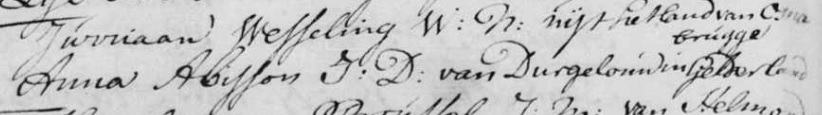 Jurriaan Wesseling W: N: uijt het land van Osna
brugge
Anna Abisson J: D: van Durgelouw in Gelderland
J: M: van Helmond